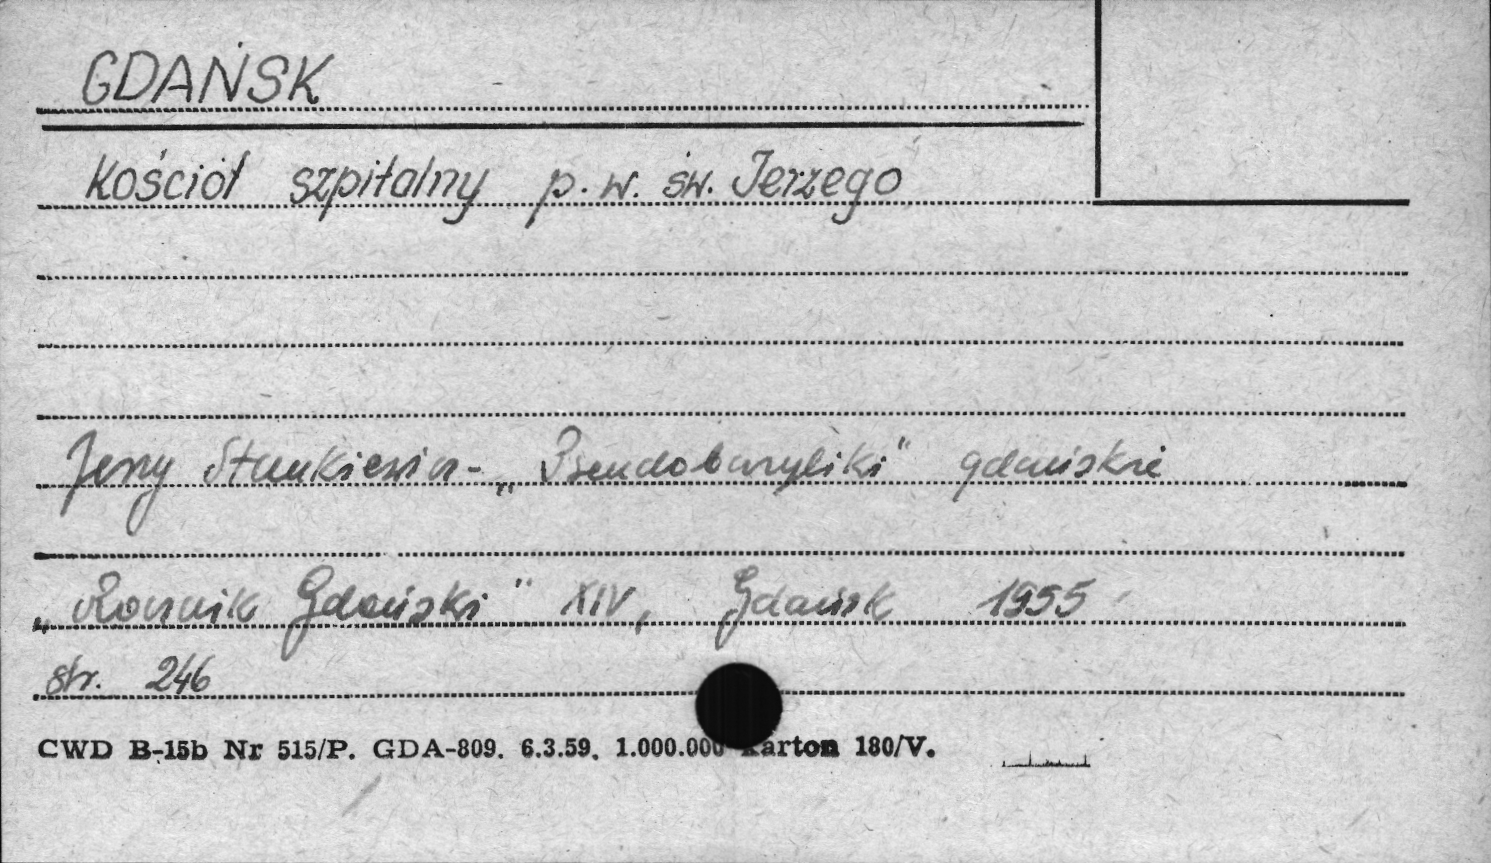 GDAŃSK
Kościół szpitalny p.w. św. Jerzego
Jerzy Stankiewicz - „Pseudobazyliki" gdańskie
„Rocznik Gdański" XIV, Gdańsk 1955
str. 246
CWD B-15b Nr 515/P. GDA-809. 6.3.59. 1.000.000 Karton 180/V.